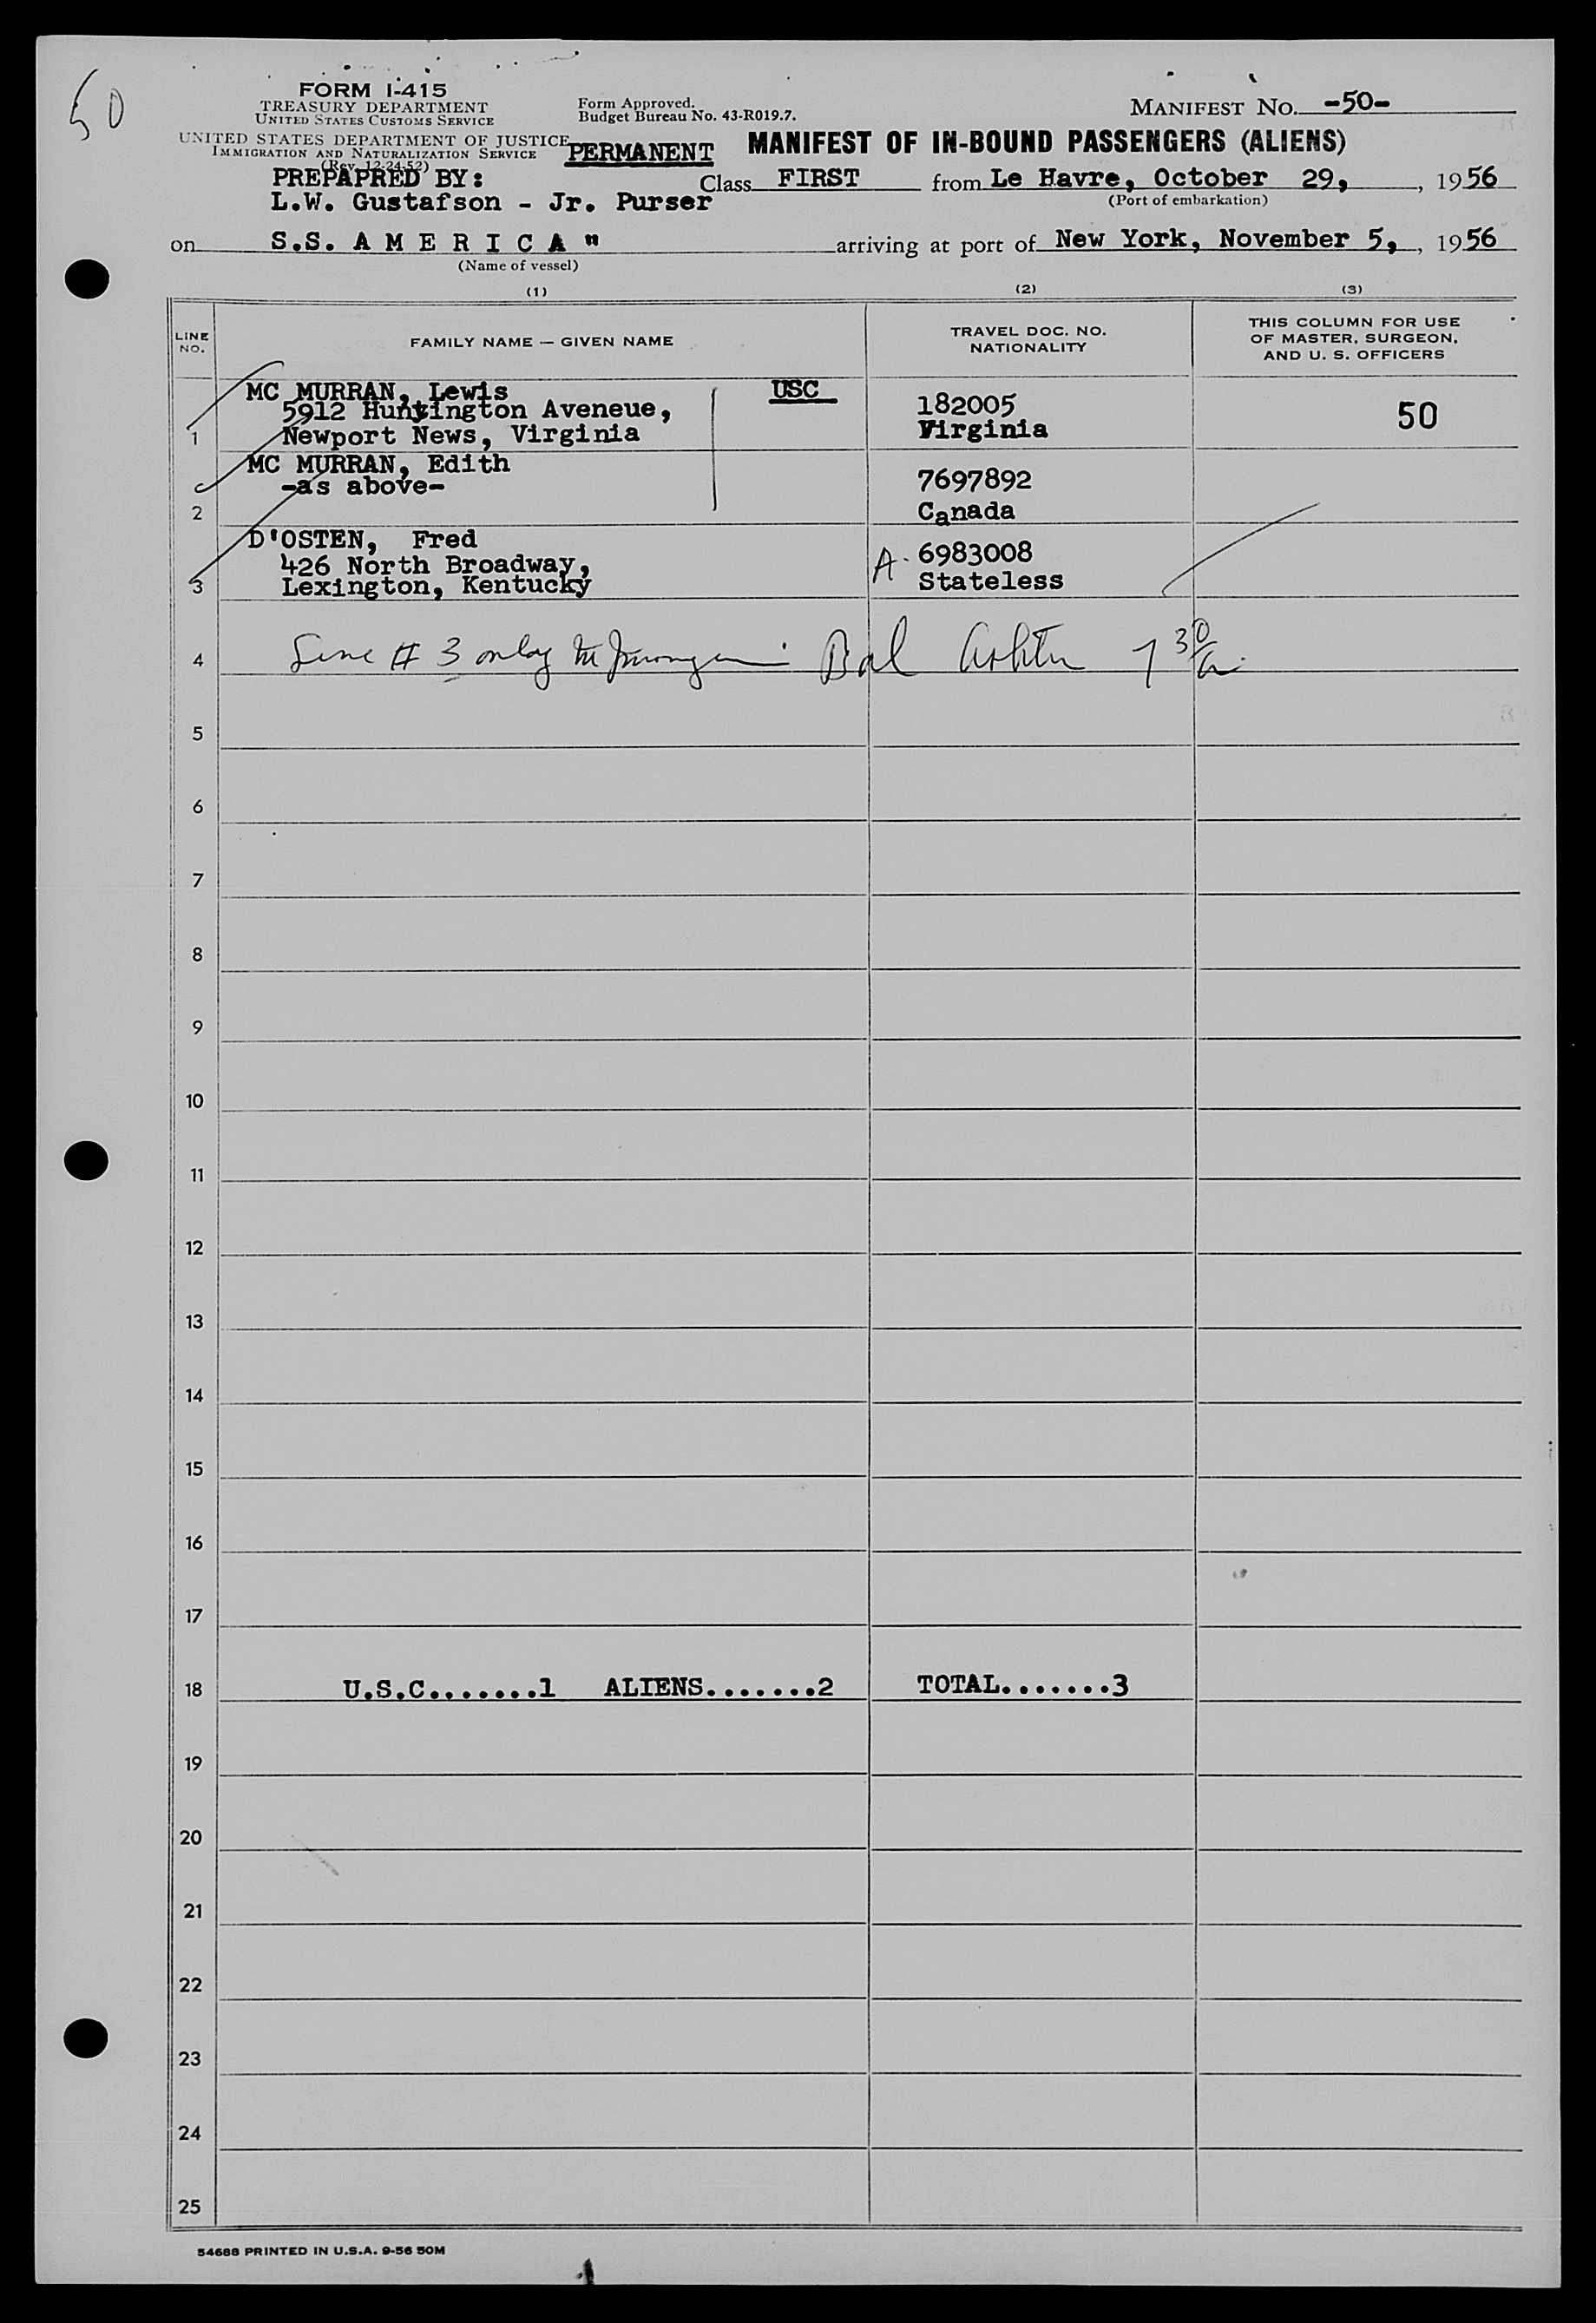 50
FORM I-415
TREASURY DEPARTMENT
UNITED STATES CUSTOMS SERVICE
UNITED STATES DEPARTMENT OF JUSTICE
IMMIGRATION AND NATURALIZATION SERVICE
(Rev. 12-24-52)
Form Approved.
Budget Bureau No. 43-R019.7.
MANIFEST NO. -50-
PERMANENT MANIFEST OF IN-BOUND PASSENGERS (ALIENS)
PREPAPRED BY:
L.W. Gustafson - Jr. Purser
Class FIRST from Le Havre, October 29, , 1956
(Port of embarkation)
on S.S. A M E R I C A " arriving at port of New York, November 5, , 1956
(Name of vessel)
(1) (2) (3)
LINE NO. FAMILY NAME — GIVEN NAME TRAVEL DOC. NO. NATIONALITY THIS COLUMN FOR USE OF MASTER, SURGEON, AND U. S. OFFICERS
MC MURRAN, Lewis USC 182005
5912 Huntington Aveneue, Virginia 50
1 Newport News, Virginia
MC MURRAN, Edith 7697892
-as above-
2 Canada
D'OSTEN, Fred A- 6983008
426 North Broadway, Stateless
3 Lexington, Kentucky
4 Line # 3 only
5
6
7
8
9
10
11
12
13
14
15
16
17
18 U.S.C.......1 ALIENS.......2 TOTAL.......3
19
20
21
22
23
24
25
54688 PRINTED IN U.S.A. 9-56 50M